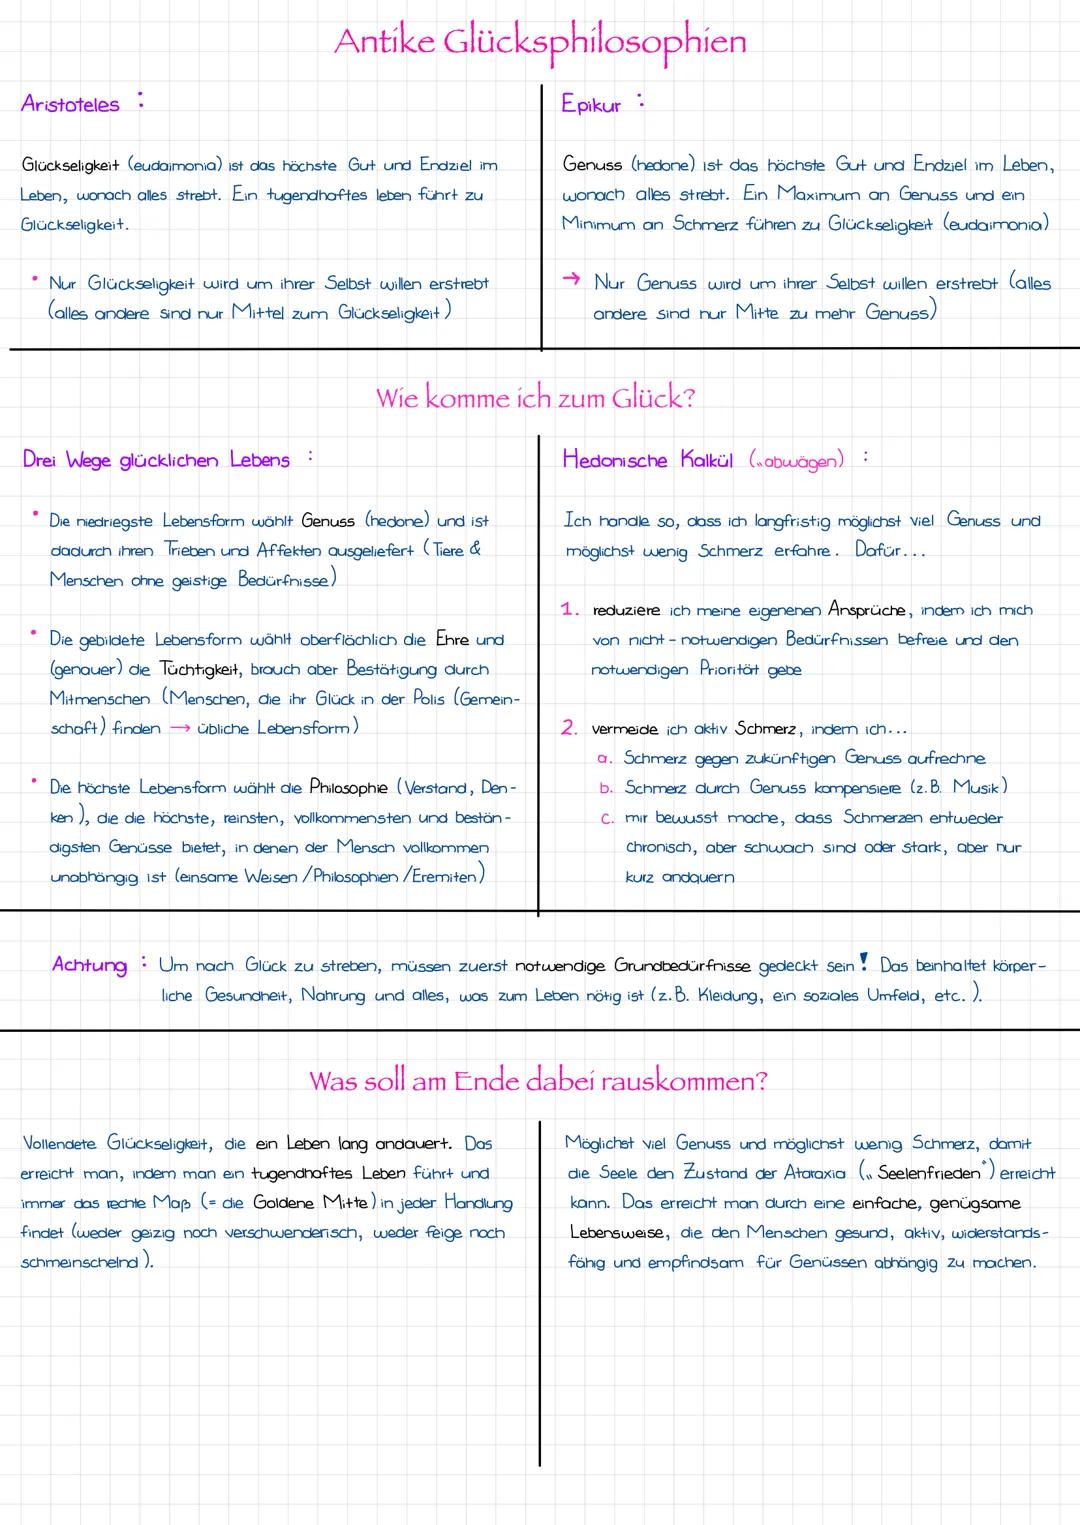 Antike Glücksphilosophien
Aristoteles :
Glückseligkeit (eudaimonia) ist das höchste Gut und Endziel im
Leben, wonach alles strebt. Ein tugendhaftes leben führt zu
Glückseligkeit.
• Nur Glückseligkeit wird um ihrer Selbst willen erstrebt
(alles andere sind nur Mittel zum Glückseligkeit)
Epikur :
Genuss (hedone) ist das höchste Gut und Endziel im Leben,
wonach alles strebt. Ein Maximum an Genuss und ein
Minimum an Schmerz führen zu Glückseligkeit (eudaimonia)
→ Nur Genuss wird um ihrer Selbst willen erstrebt (alles
andere sind nur Mitte zu mehr Genuss)
Wie komme ich zum Glück?
Drei Wege glücklichen Lebens :
• Die niedriegste Lebensform wählt Genuss (hedone) und ist
dadurch ihren Trieben und Affekten ausgeliefert (Tiere &
Menschen ohne geistige Bedürfnisse)
• Die gebildete Lebensform wählt oberflächlich die Ehre und
(genauer) die Tüchtigkeit, brauch aber Bestätigung durch
Mitmenschen (Menschen, die ihr Glück in der Polis (Gemein-
schaft) finden → übliche Lebensform)
• Die höchste Lebensform wählt die Philosophie (Verstand, Den-
ken), die die höchste, reinsten, vollkommensten und bestän-
digsten Genüsse bietet, in denen der Mensch vollkommen
unabhängig ist (einsame Weisen / Philosophien / Eremiten)
Hedonische Kalkül („abwägen) :
Ich handle so, dass ich langfristig möglichst viel Genuss und
möglichst wenig Schmerz erfahre. Dafür...
1. reduziere ich meine eigenenen Ansprüche, indem ich mich
von nicht-notwendigen Bedürfnissen befreie und den
notwendigen Priorität gebe
2. vermeide ich aktiv Schmerz, indem ich...
a. Schmerz gegen zukünftigen Genuss aufrechne
b. Schmerz durch Genuss kompensiere (z.B. Musik)
c. mir bewusst mache, dass Schmerzen entweder
chronisch, aber schwach sind oder stark, aber nur
kurz andauern
Achtung : Um nach Glück zu streben, müssen zuerst notwendige Grundbedürfnisse gedeckt sein! Das beinhaltet körper-
liche Gesundheit, Nahrung und alles, was zum Leben nötig ist (z.B. Kleidung, ein soziales Umfeld, etc.).
Was soll am Ende dabei rauskommen?
Vollendete Glückseligkeit, die ein Leben lang andauert. Das
erreicht man, indem man ein tugendhaftes Leben führt und
immer das rechte Maß (= die Goldene Mitte) in jeder Handlung
findet (weder geizig noch verschwenderisch, weder feige noch
schmeinschelnd).
Möglichst viel Genuss und möglichst wenig Schmerz, damit
die Seele den Zustand der Ataraxia („Seelenfrieden“) erreicht
kann. Das erreicht man durch eine einfache, genügsame
Lebensweise, die den Menschen gesund, aktiv, widerstands-
fähig und empfindsam für Genüssen abhängig zu machen.